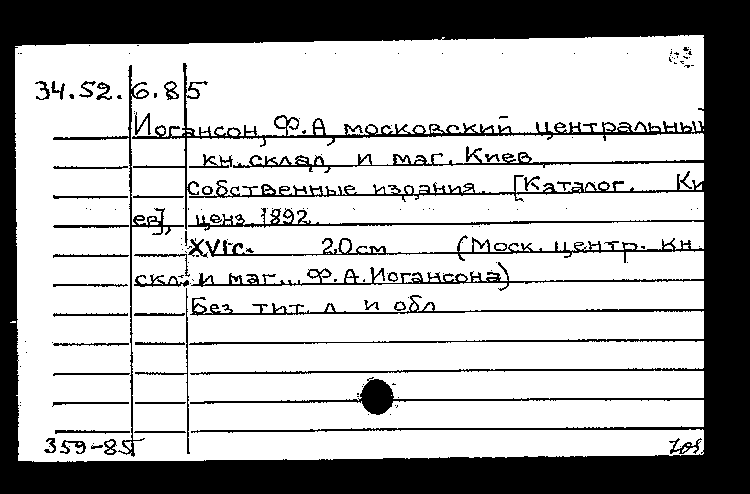 34.52.6.85
Иогансон, Ф.А, московский центральный
кн. склад, и маг. Киев
Собственные издания. [Каталог. Ки
ев], ценз. 1892.
XVI с. 20 см (Моск. центр. кн.
скл. и маг. Ф.А. Иогансона)
Без тит. л. и обл
359-85